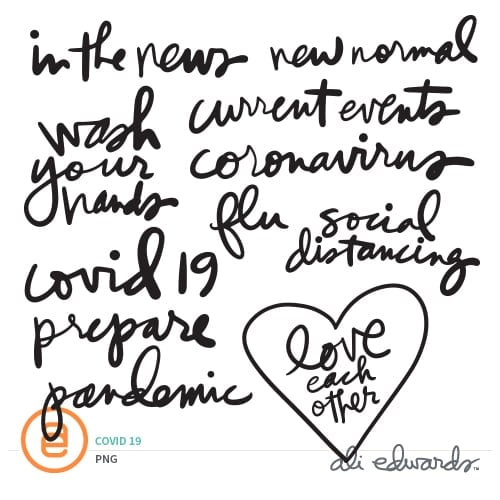 in the news
new normal
wash
your
hands
current events
coronavirus
flu
social
distancing
covid 19
prepare
pandemic
love
each
other
e
COVID 19
PNG
ali edwards™